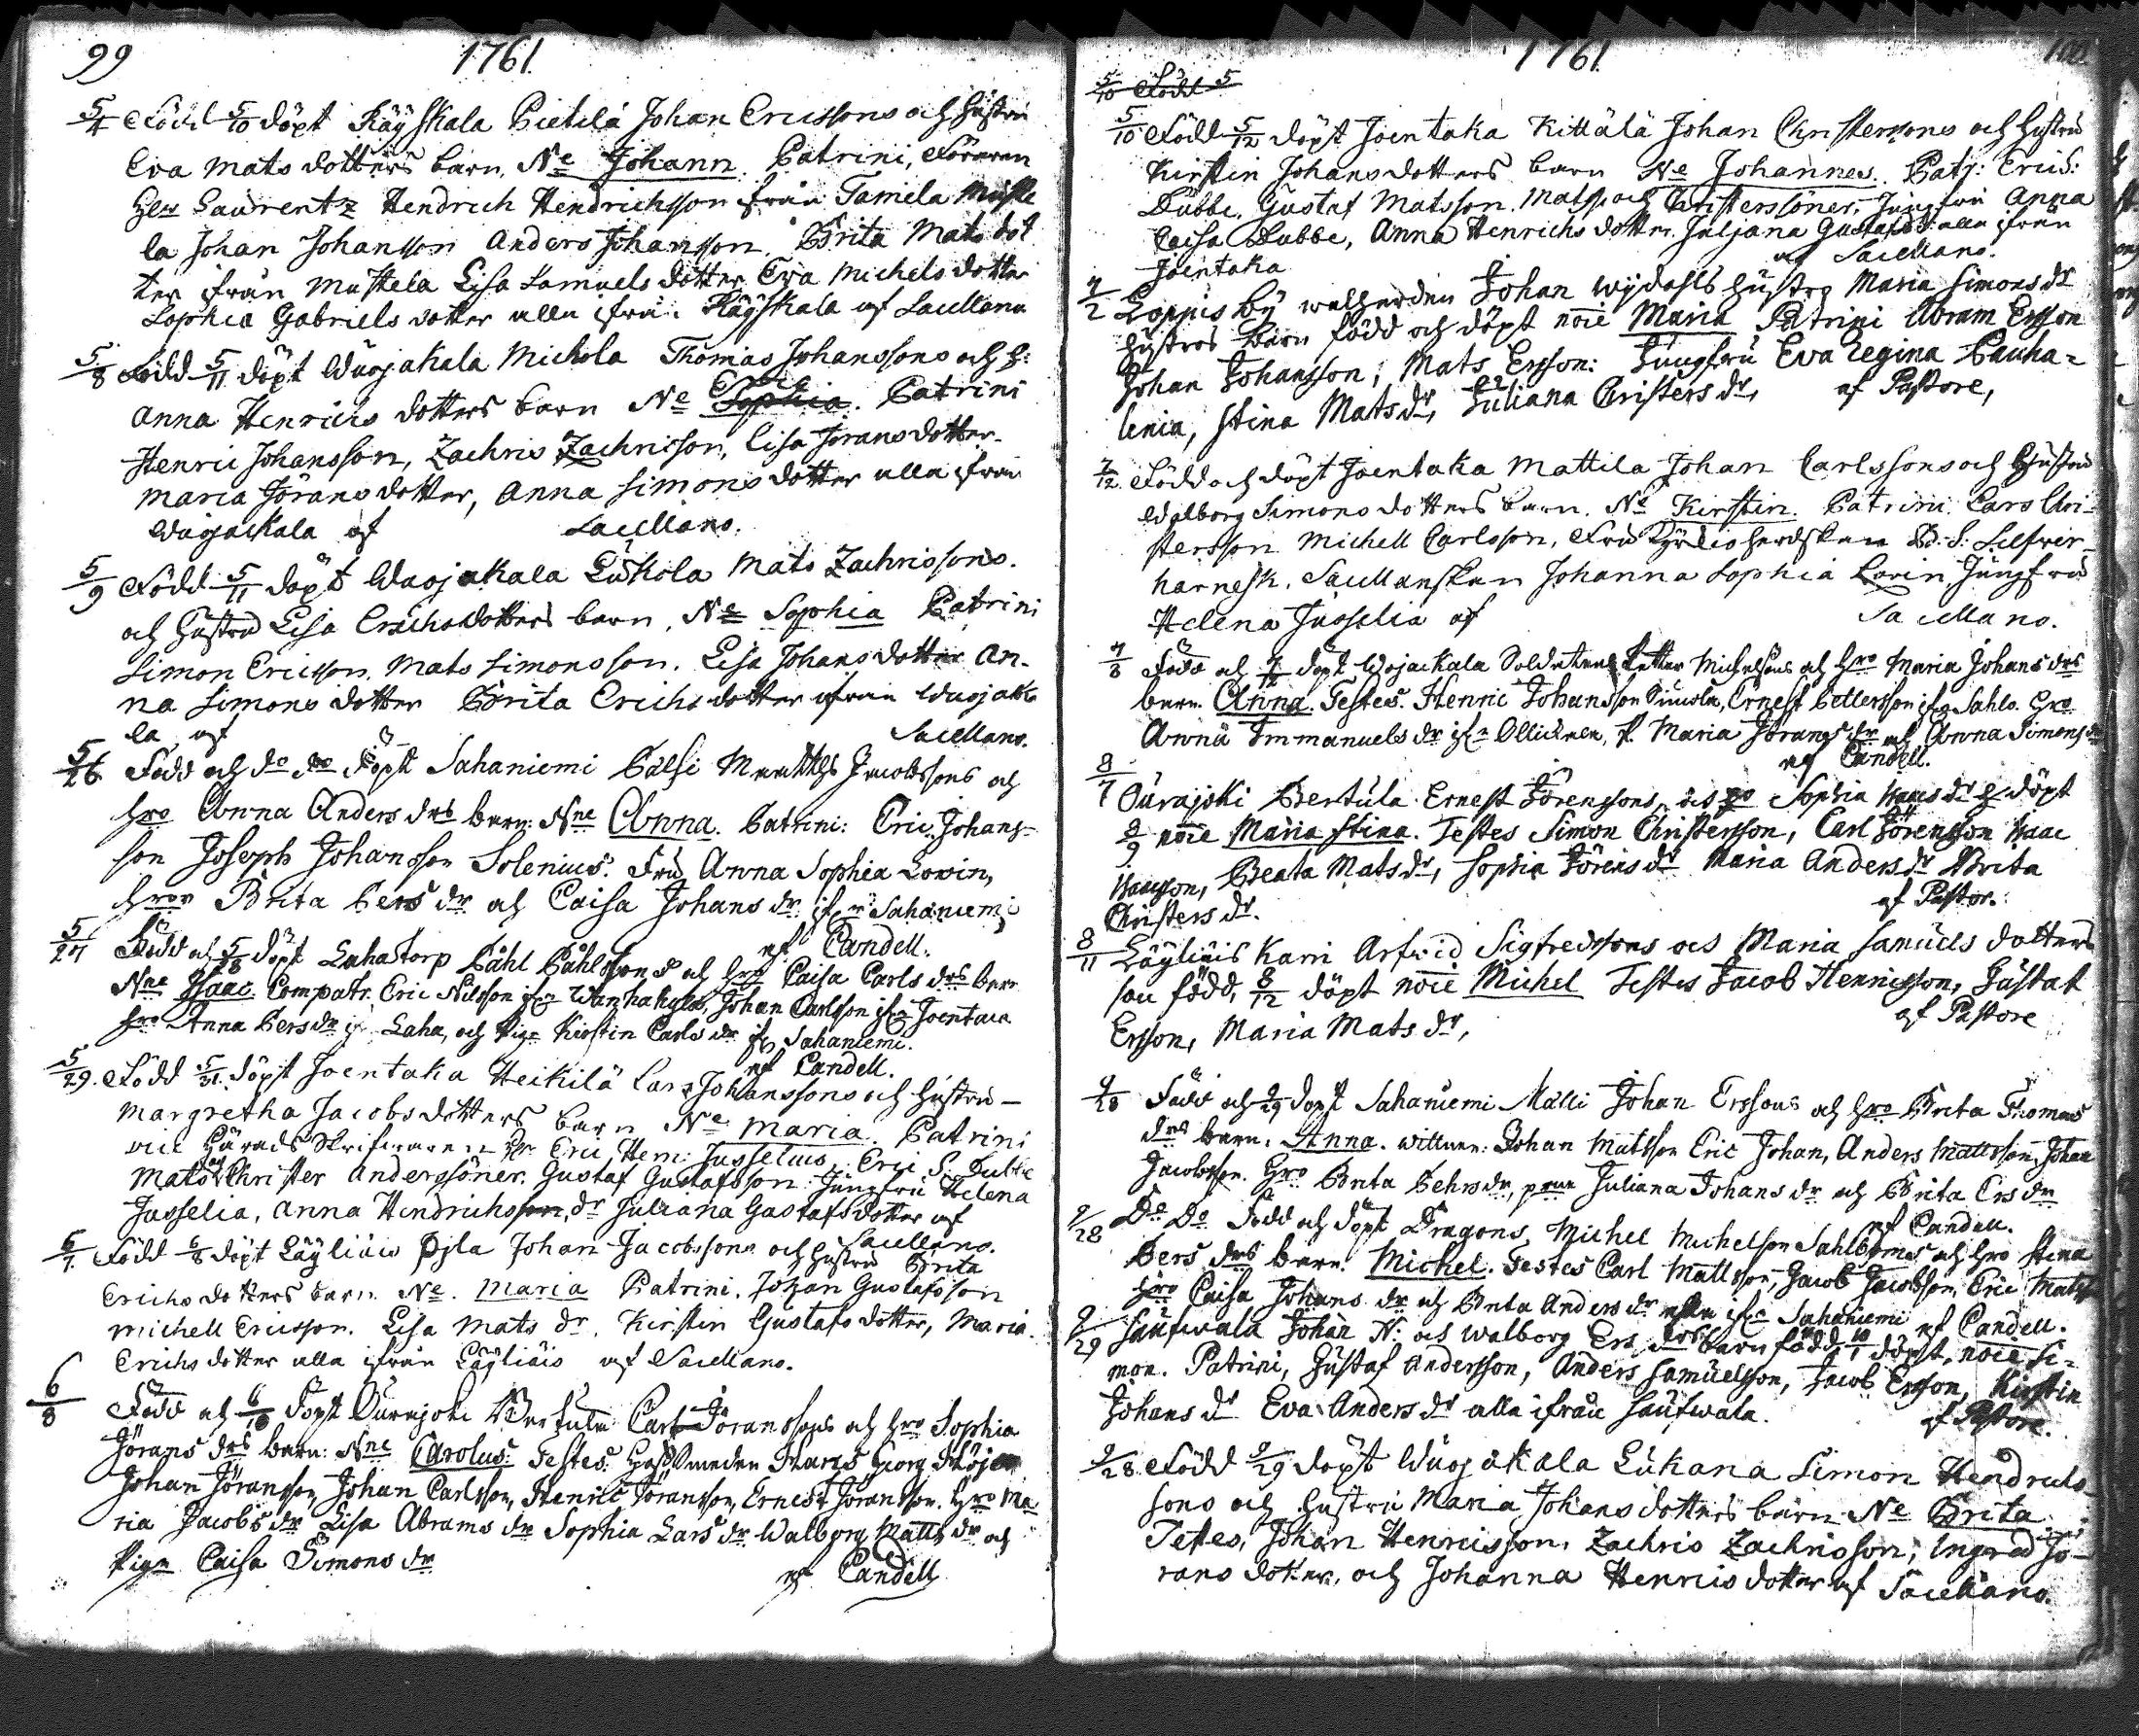 99
1761.
5/4 Född 5/10 döpt Räyskala Pietilä Johan Ericssons och hustru
Eva Mats dotters barn. Ne Johann. Patrini, Föraren
Herr Laurentz Hendrich Hendrichsson från Tamela Muste
la Johan Johansson Anders Johansson. Brita Mats dot
ter ifrån Mustela Lisa Samuels dotter Eva Michels dotter
Sophia Gabriels dotter alla ifrån Räyskala af Sacellano
5/8 Född 5/11 döpt Wuojakala Michola Thomas Johanssons och h:
Anna Henrics dotters barn Ne Sophia. Patrini
Henric Johansson, Zachris Zachrisson, Lisa Jörans dotter
Maria Jörans dotter, Anna Simons dotter alla ifrån
Wuojackala af Sacellano.
5/9 Född 5/11 döpt Wuojakala Lukola Mats Zachrissons.
och hustru Lisa Erichs dotters barn, Ne Sophia Patrini
Simon Ericsson, Mats Simonsson. Lisa Johans dotter An-
na Simons dotter Brita Erichs dotter ifrån Wuojaka
la af Sacellano.
5/26 Född och do do döpt Sahaniemi Pålsi Matths Jacobssons och
hro Anna Anders drs barn: Nne Anna. Patrini: Eric Johans-
son Joseph Johansson Solenius. Fru Anna Sophia Lorin,
hror Brita Pers dr och Caisa Johans dr ifrn Sahaniemi
af Candell.
5/27 Född och 5/28 döpt Lahatorp Påhl Påhlssons och hro Caisa Carls drs barn
Nne Isaac. Compatr. Eric Nilsson ifrn Wanhakylä, Johan Carlsson ifrn Joentaca
hro Anna Pers dr if. Laha, och Pign Kirstin Carls dr if Sahaniemi.
af Candell.
5/29. Född 5/31. döpt Joentaka Heikilä Lars Johanssons och hustru
Margretha Jacobs dotters barn Ne Maria. Patrini
vice Härads Skrifvaren Hr Eric Hem: Jusselius, Eric S. Dubbe
Mats och Christer Anderssöner. Gustaf Gustafsson. Jungfru Helena
Jusselia, Anna Hindrichsson, dr Juliana Gustafs dotter af
Sacellano.
6/7. Född 6/8 döpt Läyliäis Ojla Johan Jacobssons och hustru Brita
Erichs dotters barn Ne. Maria Patrini, Johan Gustafsson
Michell Ericsson. Lisa Mats dr. Kirstin Gustafs dotter, Maria
Erichs dotter alla ifrån Läyliäis af Sacellano.
6/8 Född och 6/10 döpt Ourajoki Bertula Carl Jöranssons och hro Sophia
Jörans drs barn: Nne Carolus: Testes: Hofsmeden Hans Georg
Johan Jöransson, Johan Carlsson, Henric Jöransson, Ernest Jöransson. Hro Ma
ria Jacobs dr Lisa Abrams dr Sophia Lars dr Walborg Matts dr och
Pign Caisa Simons dr af Candell
1761.
100.
5/10 Född 5
5/10 Född 5/12 döpt Joentaka Kittälä Johan Christerssons och hustru
Kirstin Johans dotters barn Ne Johannes. Patr: Eric S:
Dubbe, Gustaf Matsson. Mats och Christerssöner. Jungfru Anna
Caisa Dubbe, Anna Henrichs dotter. Juljana Gustafs dr alla ifrån
Joentaka af Sacellano.
7/2 Loppis by Johan Wijdahls hustro Maria Simons dr
hustros barn född och döpt noie Maria Patrini Abram Ersson
Johan Johansson, Mats Ersson: Jungfru Eva Regina Pauha-
lenia, Stina Mats dr, Juliana Christers dr, af Pastore,
7/12 Född och döpt Joentaka Mattila Johan Carlssons och hustru
Walborg Simons dotters barn. Ne Kirstin. Patrini Lars Chri-
stersson Michell Carlsson, Fru Kyrkioherdskan Silfver-
harnesk. Sacellanskan Johanna Sophia Lorin Jungfru
Helena Jusselia af Sacellano.
7/8 Född och döpt Wojackala Soldaten Petter Michelsons och hro Maria Johans drs
barn. Anna. Testes. Henric Johansson Simola, Ernest Pettersson ifrn Sahlo. Hro
Anna Immanuels dr ifrn Ollickala, P. Maria Jörans dr och Anna Simons dr
af Candell.
8/7 Ourajoki Bertula Ernest Jörenssons och ho Sophia Isaacs dr döpt
8/9 noie Maria Stina. Testes Simon Christersson, Carl Jörensson Isaac
Isaacsson, Beata Mats dr, Sophia Jörens dr Maria Anders dr Brita
Christers dr. af Pastor.
8/11 Läyliäis Karri Arfvid Sigfredssons och Maria Samuels dotters
son född, 8/12 döpt noie Michel Testes Jacob Henricsson, Gustaf
Ersson, Maria Mats dr, af Pastore
9/28 Född och 9/29 döpt Sahaniemi Målli Johan Erssons och hro Brita Thomas
drs barn. Anna. wittnen: Johan Matsson Eric Johan, Anders Mattsson, Johan
Jacobsson. Hro Brita Pehrs dr, Juliana Johans dr och Brita Ers dr
af Candell.
9/28 Do Do Född och döpt Dragons, Michel Michelson Sahlboms och hro Stina
Pers drs barn. Michel. Testes Carl Mattsson, Jacob Jacobsson, Eric Mats
hro Caisa Johans dr och Brita Anders dr alla ifrn Sahaniemi af Candell.
9/29 Saufwala Johan N: och Walborg Ers drs barn född, 10/1 döpt, noie Si-
mon. Patrini, Gustaf Andersson, Anders Samuelsson, Jacob Ersson, Kirstin
Johans dr Eva Anders dr alla ifrån Saufwala. af Pastore.
9/28 Född 9/29 döpt Wuojakala Lukana Simon Hendrichs-
sons och hustru Maria Johans dotters barn Ne Brita.
Testes, Johan Henricsson, Zachris Zachrisson, Ingred Jö-
rans dotter, och Johanna Henrics dotter af Sacellano.